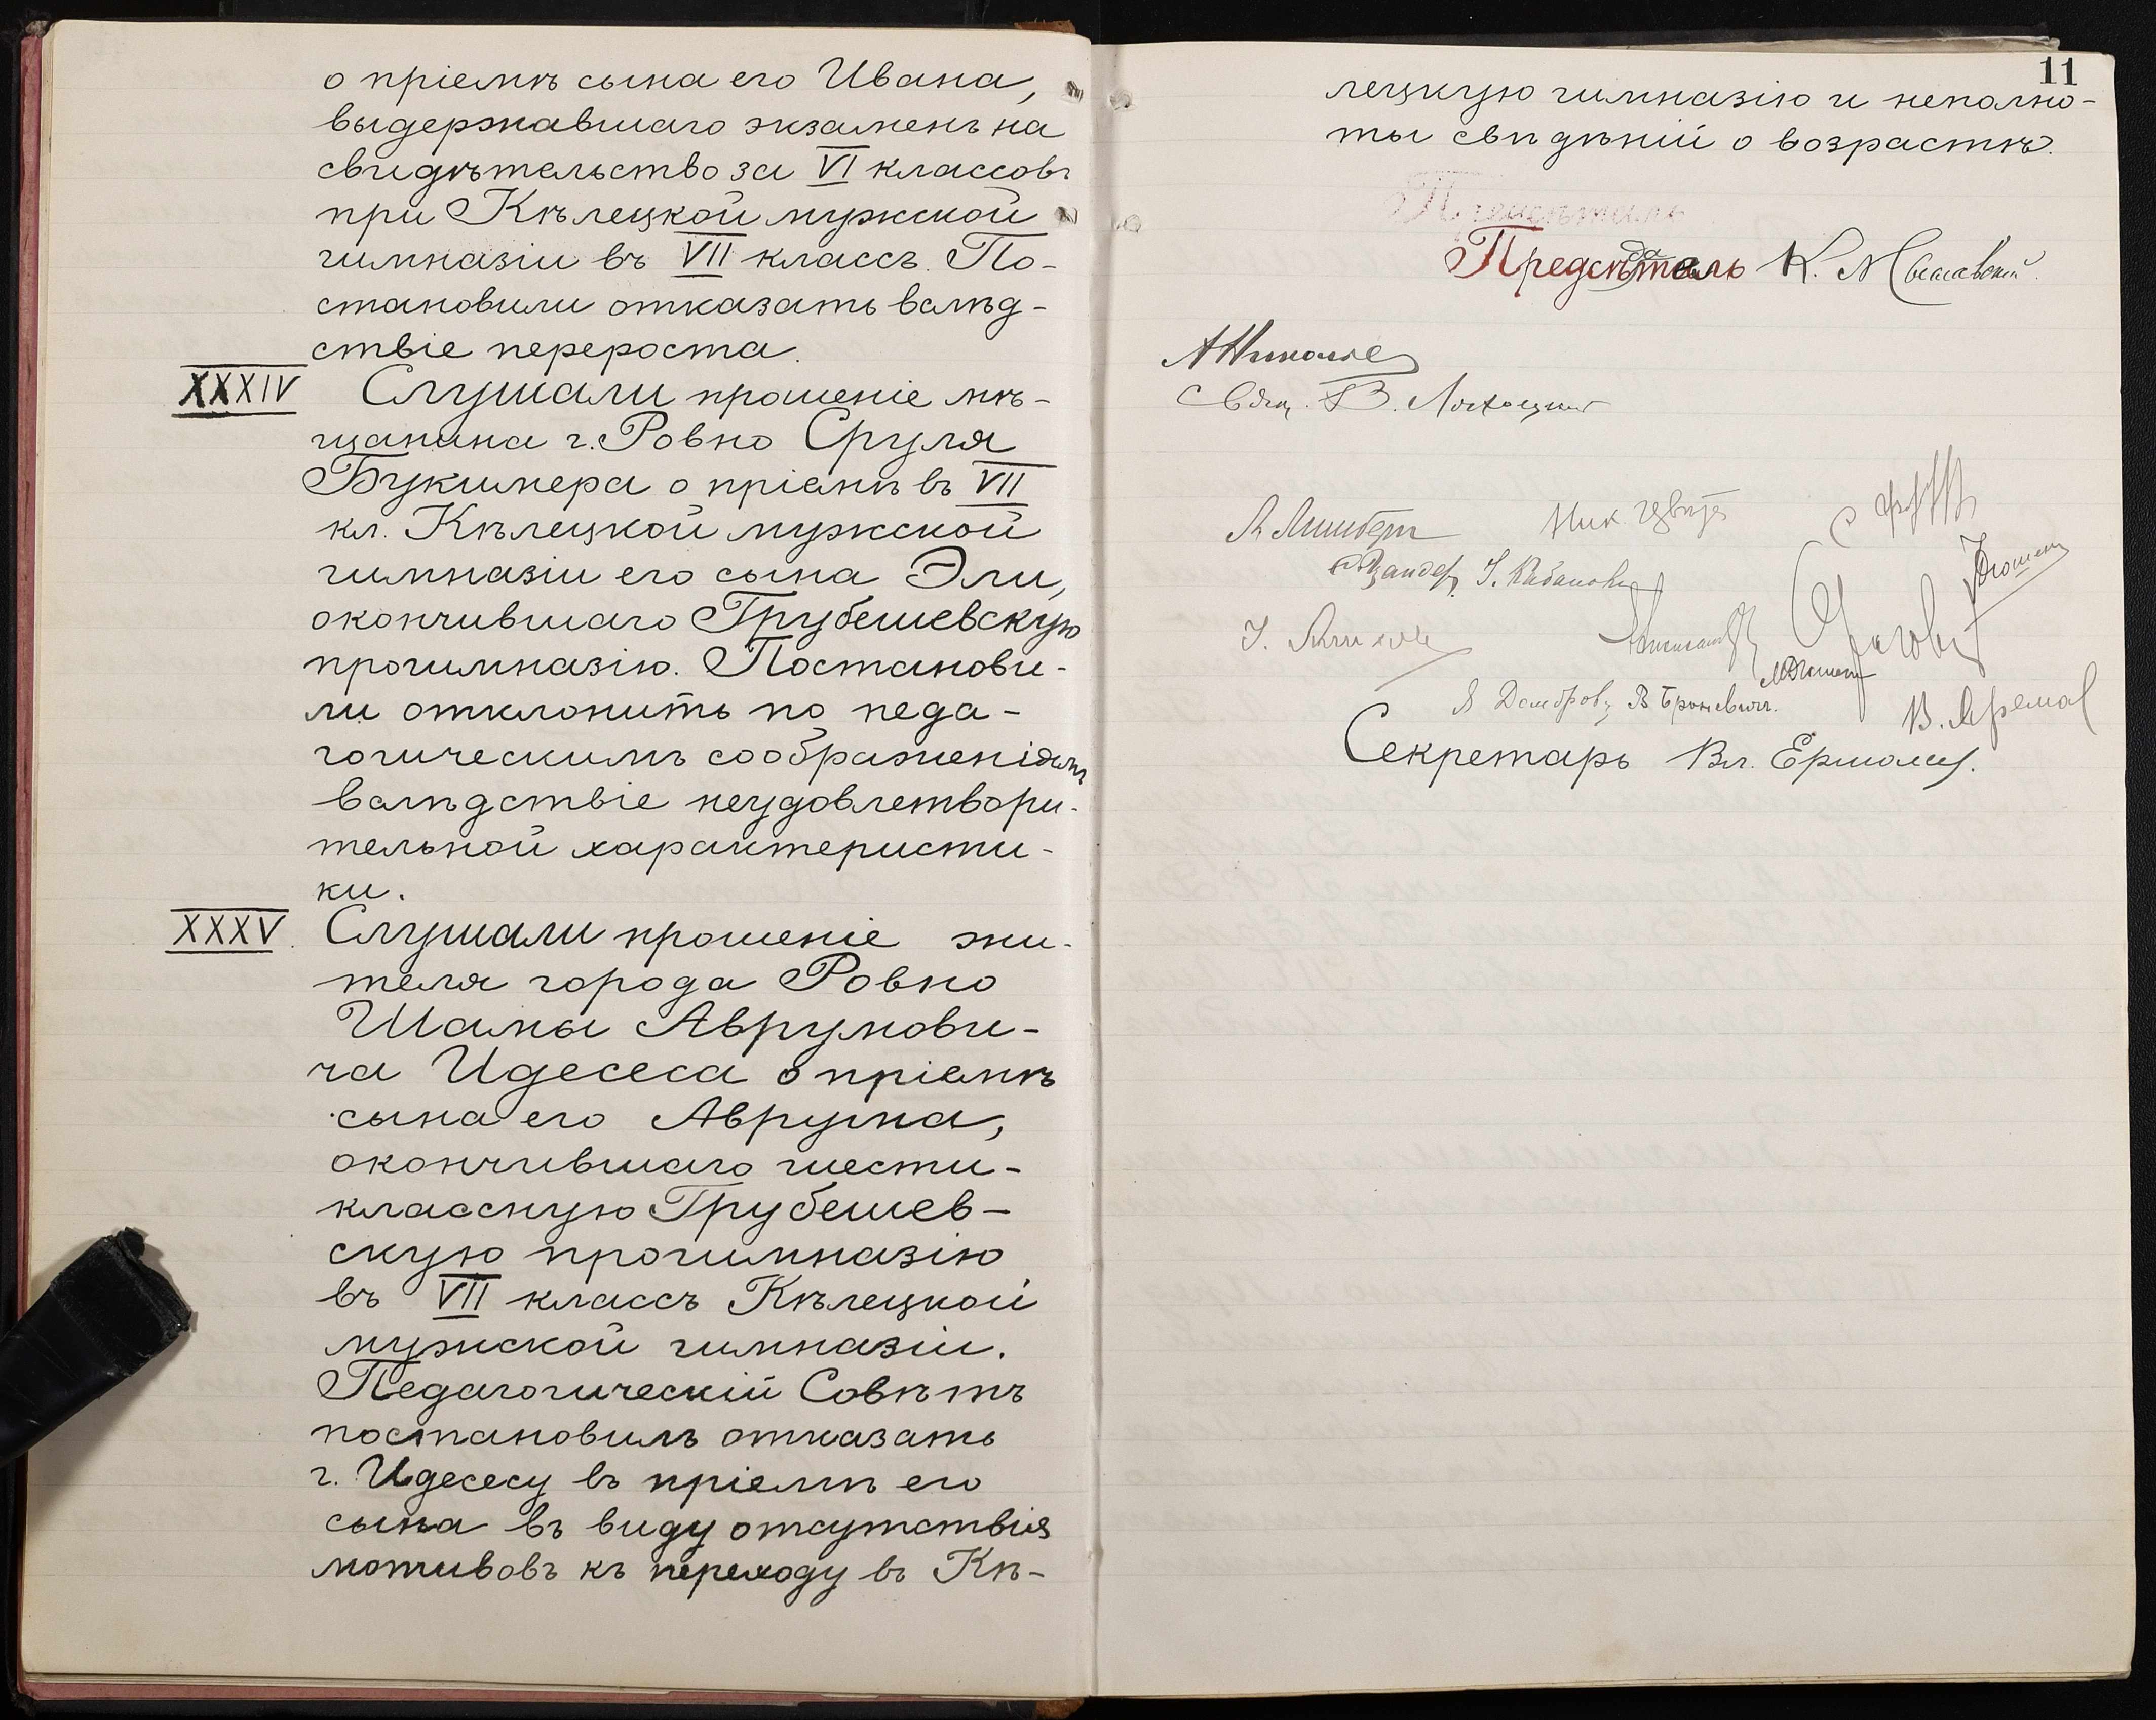 о пріемѣ сына его Ивана,
выдержавшаго экзаменъ на
свидѣтельство за VI классовъ
при Кѣлецкой мужской
гимназіи въ VII классъ. По-
становили отказать вслѣд-
ствіе перероста.
XXXIV Слушали прошеніе мѣ-
щанина г. Ровно Сруля
Букимера о пріемѣ въ VII
кл. Кѣлецкой мужской
гимназіи его сына Эли,
окончившаго Грубешевскую
прогимназію. Постанови-
ли отклонить по педа-
гогическимъ соображеніямъ
вслѣдствіе неудовлетвори-
тельной характеристи-
ки.
XXXV. Слушали прошеніе жи-
теля города Ровно
Шамы Аврумови-
ча Идесеса о пріемѣ
сына его Аврума,
окончившаго шести-
классную Грубешев-
скую прогимназію
въ VII классъ Кѣлецкой
мужской гимназіи.
Педагогическій Совѣтъ
постановилъ отказать
г. Идесесу въ пріемѣ его
сына въ виду отсутствія
мотивовъ къ переходу въ Кѣ-
11
лецкую гимназію и неполно-
ты свѣдѣній о возрастѣ.
Предсѣдатель К.
Свящ. В.
Ник.
В. Ярема
Секретарь Вл.